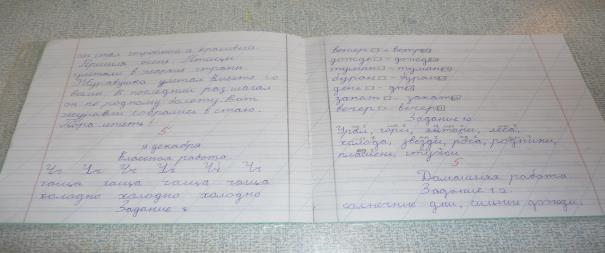 он стал стройный и красивый.
Пришла осень. Птицы
улетали в жаркие страны.
Журавушка улетал вместе со
всеми. В последний раз шагал
он по родному болоту. Вот
журавли собрались в стаю.
Пора лететь!
5
9 декабря
Классная работа
Чч Чч Чч Чч Чч Чч
чаща чаща чаща чаща
холодно холодно холодно
Задание
ветер □ – ветр□
дождь□ – дожд□
туман□ – туман□
буран□ – буран□
день□ – дн□
закат□ – закат□
вечер□ – вечер□
Задание 10
Угол, гора,
холода, звёзды, роса, родники,
5
Домашняя работа
Задание 12
солнечные дни, сильные дожди,